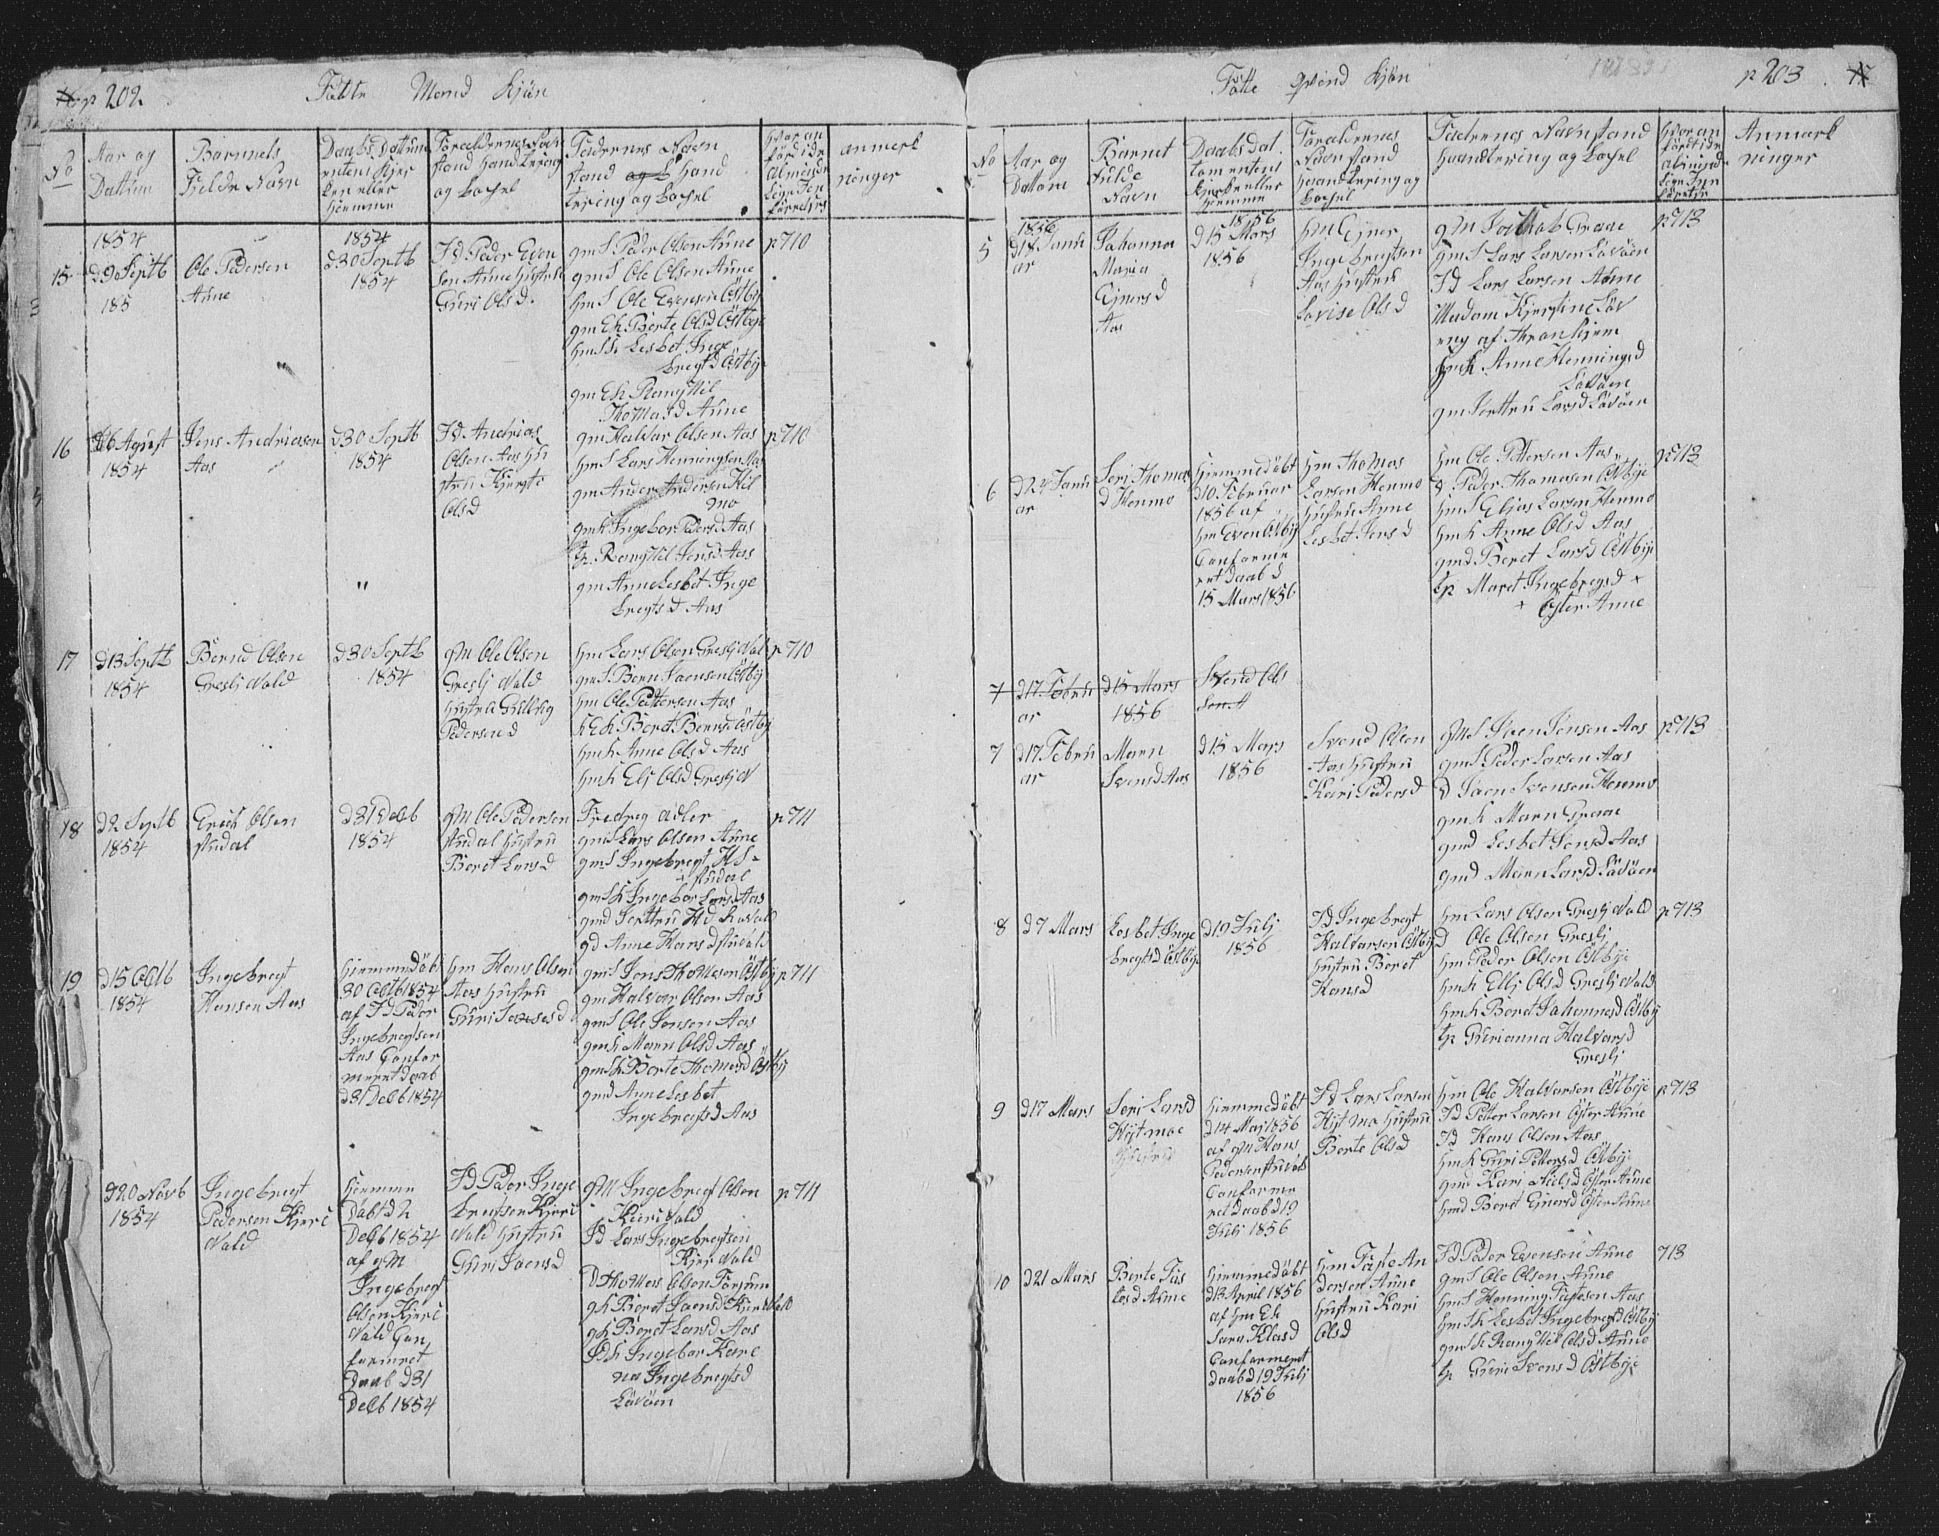 p 202. Fødte Mand Kjön
No
Aar og
Dattum
Barnnets
Fielde Navn
Daabs Dattum
entens kjer
ken eller
hiemme
Foreldernes Nav
stand handtering
og boepel
Fadernes Navn
stand og b hand
tering og boepel
hvor an
ført i de
Almende
lige Jen
førrelses
anmerk
ninger
1854
15 d 9 Septb
185
Ole Pedersen
Aune
1854
d 30 Septb
1854
Id Peder Even
sen Aune hustru
Guri Olsd.
gm S Peder Olsen Aune
gm S Ole Olsen Aune
hm S Ole Evensen Östby
gm Ek Berte Olsd Östbye
hm S k Lesbet Inge
bregtsd Östbye
gm Ek Rangttil
Thomasd Aune
p 710
16 d 6 Agust
1854
Jens Andriasen
Aas
d 30 Septb
1854
Id Andrias
Olsen Aas hu
stru Kjerste
Olsd
gm Halvar Olsen Aas
hm S Lars Henningsen Aas
gm Ander Andersen Kil
mo
gm k Ingebor Pedersd Aas
tp. Rangttil Jensd Aas
gm Anne Lesbet Inge
bregtsd Aas
p 710
"
17 d 13 Septb
1854
Bernd Olsen
Greslj Vold
d 30 Septb
1854
gM Ole Olsen
Greslj Vold
hustru Gulleg
Pedersend
hm Lars Olsen Greslj Vol
gm S Bern Jaensen Östby
hm Ole Pettersen Aas
h Ek Beret Berntsd Östby
hm k Anne Olsd Aas
hm k Elj Olsd Greslj V
p 710
18 d 2 Septb
1854
Erich Olsen
studal
d 31 Decb
1854
gM Ole Pedersen
studal hustru
Beret Larsd
Fredreg Adler
gm S Lars Olsen Aune
gm S Ingebregt H S-
studal
gm S k Ingebor Larsd Aas
gmd Jerttru H d Rovald
gd Anne Hansd studal
p 711
19 d 15 Octb
1854
Ingebregt
Hansen Aas
hiemmedöbt
30 Octb 1854
af Id Peder
Ingebregtsen
Aas Confor
meret daab
d 31 Decb 1854
hm Hans Olsen
Aas hustru
Guri Jensesd
gm S Jens Thomesen Östby
gm Halvor Olsen Aas
gm S Ole Jonsen Aas
gm k Marn Olsd Aas
gm S k Berte Thomasd Östby
gmd Anne Lesbet
Ingebregtsd Aas
p 711
d 20 Novb
1854
Ingebregt
Pedersen Kjeri
Vald
hiemme
Döbt d 2
Decb 1854
af gM
Ingebregt
Olsen Kjeri
Vald Con
formret
Daab d 31
Decb 1854
Id Peder Inge
bregtsen Kjeri
Vald hustru
Guri Jaensd
gM Ingebregt Olsen
Kieri Vald
Id Lars Ingebregtsen
Kjer Vald
D Thomes Olsen Forsum
gk Beret Jaensd Kjeri Vald
gk Beret Larsd Aas
Idk Ingebor Kare
na Ingebregtsd
Lövöen
p 711
Fötte Qvend Kjön p 203
No
Aar og
Dattom
Barnet
Fulde
Navn
Daabs dat
tomentens
kjerken eller
hiemme
Foreldrenes
Navn stand
haandtering og
boepel
Fadrenes Navn stand
haandtering og boepel
hvor an
ført i de
alminde
lige Jen
førrelse
Anmærk
ninger
1856
5 d 18 Janu
ar
Johanna
Maria
Ejnersd
Aas
1856
d 15 Mars
1856
hm Ejner
Ingebregtsen
Aas hustru
Lovise Olsd
gM Jakob Graae
gm S Lars Larsen Lövöen
Id Lars Larsen Aune
Madam Kjerstine Löv
eng af Thronhiem
hm k Anne Henningsd
Lövöen
gm Jerttru Larsd Lövöen
p 713
6 d 24 Janu
ar
Seri Thomas
d Henmo
hiemmedöbt
d 10 Februar
1856 af
hm Even Östby
Conforme
ret Daab d
15 Mars 1856
hm Thomas
Larsen Henmo
hustru Anne
Lesbet Jensd
hm Ole Pettersen Aas
D Peder Thomasen Östbye
hm S Elias Larsen Henmo
hm k Anne Olsd Aas
gmd Beret Larsd Östbye
tp Maret Ingebregtsd
Öster Aune
p 713
7 d 17 Febru
ar
d 15 Mars
1856
Svend Ols
sen A
7 d 17 Febru
ar
Marn
Svensd Aas
d 15 Mars
1856
Svend Olsen
Aas hustru
Kari Pedersd
gM S Iven Jensen Aas
gm S Peder Larsen Aas
D Jaen Svensen Henmo
gm k Marn Graae
gmd Lesbet Jonsd Aas
gmd Marn Larsd Lövöen
p 713
8 d 7 Mars
Lesbet Inge
bregtsd Östbye
d 19 Julj
1856
Id Ingebregt
Halvarsen Östby
hustru Beret
Hansd
hm Lars Olsen Greslj Vald
D Ole Olsen Greslj
hm Peder Olsen Östbye
hm k Ellj Olsd Greslj Vald
hm k Beret Johannesd Östby
tp Gurianna Halvarsd
Greslj
p 713
9 d 17 Mars
Seri Larsd
Hijtmoe
hiemmedöbt
d 14 Maj 1856
af gM Hans
Pedersen studal
Conforme
ret daab d 19
Julj 1856
Id Lars Larsen
Hijtmo hustru
Berte Olsd
hm Ole Halvarsen Östbye
Id Petter Larsen Öster Aune
Id Hans Olsen Aas
hm k Guri Pettersd Östbye
gmd Kari Nielsd Öster Aune
hmd Beret Einersd Öster Aune
p 713
10 d 21 Mars
Berte Tøs
tesd Aune
hiemmedöbt
d 13 April 1856
af hm Ek
Sara Klasd
Conformeret
daab d 19 Julj
1856
hm Tøste An
dersen Aune
hustru Kari
Olsd
Id Peder Evensen Aune
gm S Ole Olsen Aune
hm S Henning Tøstesen Aas
hm S k Lesbet Ingebregtsd Östby
gm S k Rangttil Olsd Aune
tp Guri Svensd Östbye
713